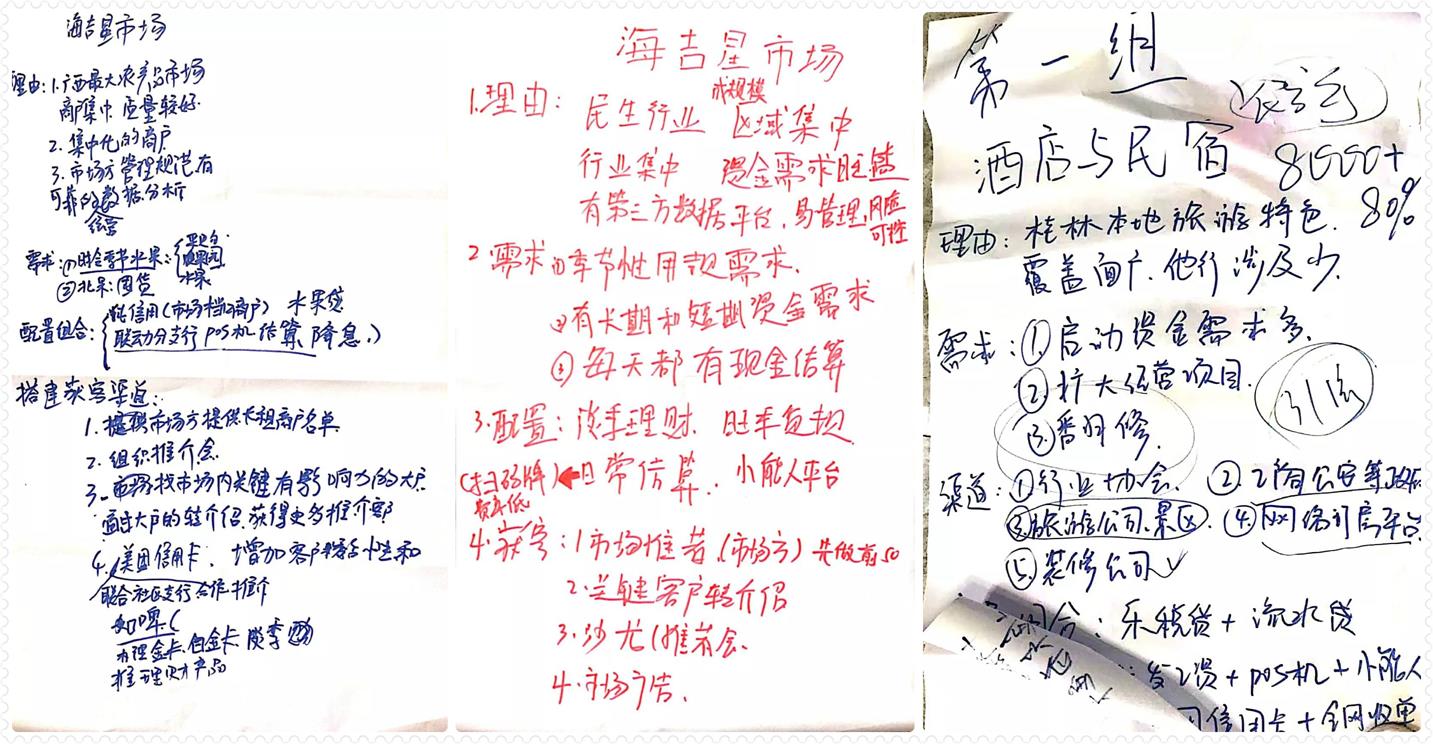 海吉星市场
理由:1.广西最大农产品市场
商户集中 质量较好
2.集中化的商户
3.市场方管理规范,有
可靠的数据分析
经营
需求:①时令季节水果:
②北果:囤货
水果
配置组合: 纯信用(市场档口商户) 水果贷
联动分支行POS机结算,降息,)
搭建获客渠道:
1.市场方提供长租商户名单
2.组织推介会
3.找市场内关键有影响力的大户
通过大户的转介绍,获得更多推介客户
4.美团信用卡,增加客户
联合社区支行合作推介
办理金卡、白金卡 淡季
推理财产品
海吉星市场
成规模
1.理由: 民生行业 区域集中
行业集中 资金需求旺盛
有第三方数据平台,易管理,风险
可控
2.需求①季节性用款需求.
②有长期和短期资金需求
③每天都有现金结算
3.配置:淡季理财. 旺季负担
(扫码牌)←日常结算. 小能人平台
费率低
4.获客:1市场推荐.(市场方) 先做前50
2.关键客户转介绍
3.沙龙(推荐会.
4.市场广告.
第一组
酒店与民宿 8000+
80%
理由:桂林本地旅游特色.
覆盖面广.他行涉及少.
需求:①启动资金需求多.
②扩大经营项目.
③翻修.
渠道:①行业协会. ②工商公安等政府
③旅游公司、景区. ④网络订房平台.
⑤装修公司✓
合:乐税贷+流水贷
:发工资+POS机+小能人
信用卡+全网收单